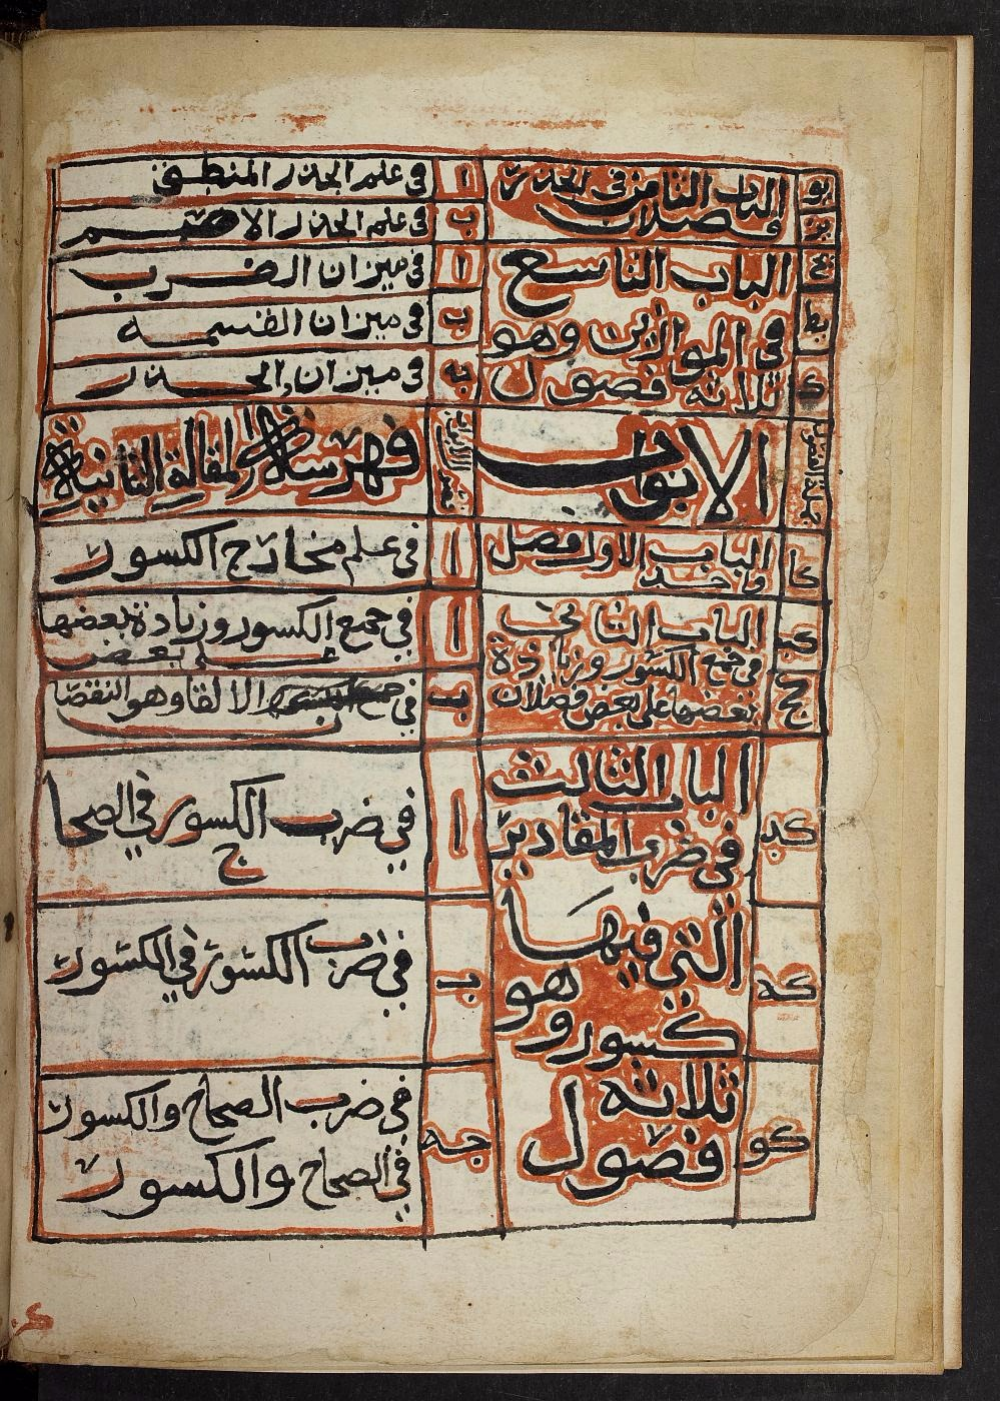 يو
الباب الثامن في الجذر
فصلان
ا
في علم الجذر المنطقي
يز
ب
في علم الجذر الاصم
يح
الباب التاسع
في الموازين وهو
ثلاثة فصول
ا
في ميزان الضرب
يط
ب
في ميزان القسمه
ك
جه
في ميزان الجذر
جملة الفصول
الابواب
فهرسة المقالة الثانية
كا
الباب الاول فصل
واحد
ا
في علم مخارج الكسور
كب
الباب الثاني
في جمع الكسور وزيادة
بعضها على بعض فصلان
ا
في جمع الكسور وزيادة بعضها
على بعض
كج
ب
في الالقا وهو النقصان
كد
الباب الثالث
في ضرب المقادير
الّتي فيها
كسور وهو
ثلاثه
فصول
ا
في ضرب الكسور في الصحا
ح
كه
ب
في ضرب الكسور في الكسور
كو
جه
في ضرب الصحاح والكسور
في الصحاح والكسور